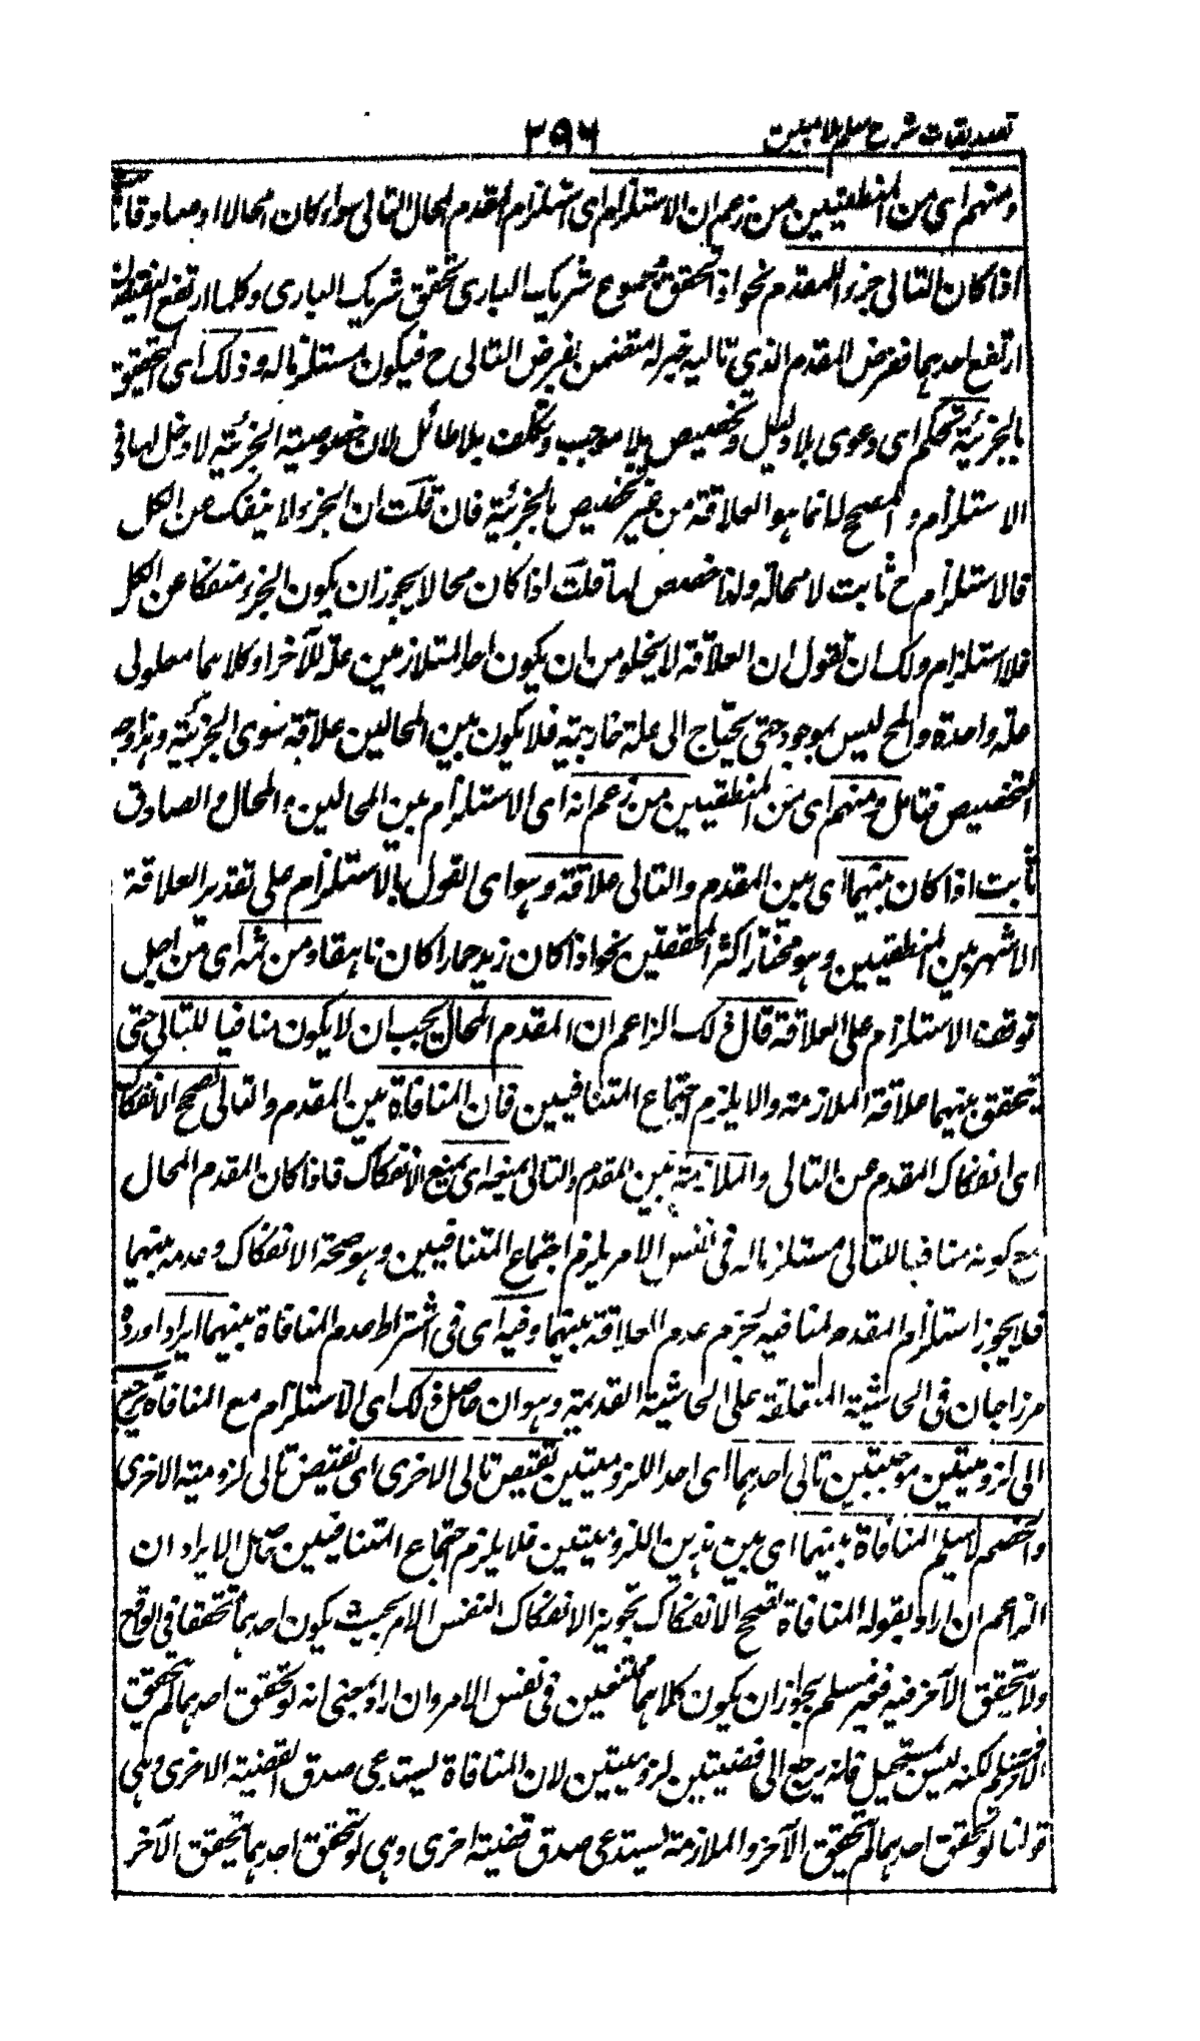 تصديقات شرح سلم ملا مبين ٢٩٦
ومنهم اى من المنطقيين من زعم ان الاستلزام اى استلزام المقدم المحال التالى سواء كان محالا او صادقا
اذا كان التالى جزء للمقدم نحو اذا تحقق مجموع شريك البارى تحقق شريك البارى وكلما ارتفع النقيضان
ارتفع احدهما ففرض المقدم الذى تاليه جزء له متضمن لفرض التالى ح فيكون مستلزما له وذلك اى التحقيق
بالجزئية تحكم اى دعوى بلا دليل وتخصيص بلا موجب وتكلف بلا طائل لان خصوصية الجزئية لا دخل لها فى
الاستلزام والمصحح له انما هو العلاقة من غير تخصيص بالجزئية فان قلت ان الجزء لا ينفك عن الكل
فالاستلزام ح ثابت لا محالة ولهذا خصص لها قلت اذا كان محالا يجوز ان يكون الجزء منفكا عن الكل
فلا استلزام ولك ان تقول ان العلاقة لا يخلو من ان يكون احد المتلازمين علة للآخر او كلاهما معلولى
علة واحدة والمح ليس بموجود حتى يحتاج الى علة خارجية فلا يكون بين المحالين علاقة سوى الجزئية وهذا وجه
التخصيص فتامل ومنهم اى من المنطقيين من زعم انه اى الاستلزام بين المحالين والمحال والصادق
ثابت اذا كان بينهما اى بين المقدم والتالى علاقة وهو اى القول بالاستلزام على تقدير العلاقة
الاشهر بين المنطقيين وهو مختار اكثر المحققين نحو اذا كان زيد حمارا كان ناهقا ومن ثمه اى من اجل
توقف الاستلزام على العلاقة قال ذلك الزاعم ان المقدم المحال يجب ان لا يكون منافيا للتالى حتى
تحقق بينهما علاقة الملازمة والا يلزم اجتماع المتنافيين فان المنافاة بين المقدم والتالى تصحح الانفكاك
اى انفكاك المقدم من التالى والملازمة بين المقدم والتالى يمنعه اى يمنع الانفكاك فاذا كان المقدم المحال
مع كونه منافيا للتالى مستلزما له فى نفس الامر يلزم اجتماع المتنافيين وهو صحة الانفكاك وعدمه بينهما
فلا يجوز استلزام المقدم لمنافيه لجزم عدم العلاقة بينهما وفيه اى فى اشتراط عدم المنافاة بينهما ايراد اورده
مرزا جان فى الحاشية المتعلقة على الحاشية القديمة وهو ان حاصل ذلك اى الاستلزام مع المنافاة يرجع
الى لزوميتين موجبتين تالى احدهما اى احد اللزوميتين نقيض تالى الاخرى اى نقيض تالى لزومية الاخرى
والخصم لا يسلم المنافاة بينهما اى بين هذين اللزوميتين فلا يلزم اجتماع المتنافيين حاصل الايراد ان
الزاعم ان اراد بقوله المنافاة تصحح الانفكاك تجويز الانفكاك النفس الامر بحيث يكون احدهما متحققا فى الواقع
ولا تحقق الآخر فيه فغير مسلم لجواز ان يكون كلاهما منتفيين فى نفس الامر وان اراد بمعنى انه لو تحقق احدهما لم يتحقق
الآخر فمسلم لكنه ليس بمستحيل فانه يرجع الى قضيتين لزوميتين لان المنافاة ليستدعى صدق القضية الاخرى وهى
قولنا لو تحقق احدهما لم يتحقق الآخر والملازمة ليستدعى صدق قضية اخرى وهى لو تحقق احدهما تحقق الآخر